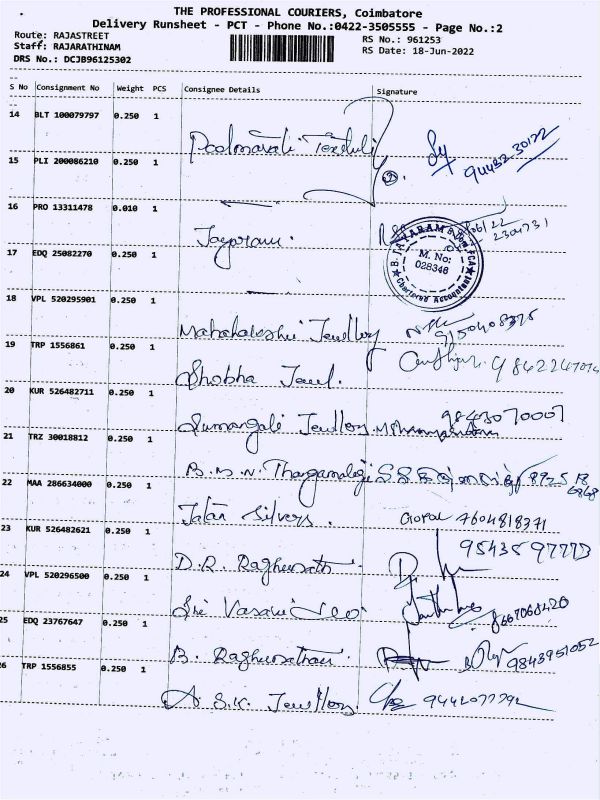 THE PROFESSIONAL COURIERS, Coimbatore
Delivery Runsheet - PCT - Phone No.:0422-3505555 - Page No.:2
Route: RAJASTREET
RS No.: 961253
Staff: RAJARATHINAM
RS Date: 18-Jun-2022
DRS No.: DCJB96125302
S No Consignment No Weight PCS Consignee Details Signature
14 BLT 100079797 0.250 1
15 PLI 200086210 0.250 1
16 PRO 13311478 0.010 1
Jayaram.
B. JAYARAM B.Com FCA
M. No: 028346
Chartered Accountant
17 EDQ 25082270 0.250 1
18 VPL 520295901 0.250 1
Mahahalashmi Jewellery
19 TRP 1556861 0.250 1
Shobha Jewl.
20 KUR 526482711 0.250 1
Sumangali Jewllery 9843070007
21 TRZ 30018812 0.250 1
B.M.N. Thangamaligai
22 MAA 286634000 0.250 1
Jalan Silvers. Gopal 7604818371
23 KUR 526482621 0.250 1
D.R. Raghunath
24 VPL 520296500 0.250 1
Sri Vasavi 8667068420
25 EDQ 23767647 0.250 1
B. Raghunathan. 9843951052
26 TRP 1556855 0.250 1
A.S.K. Jewllery.